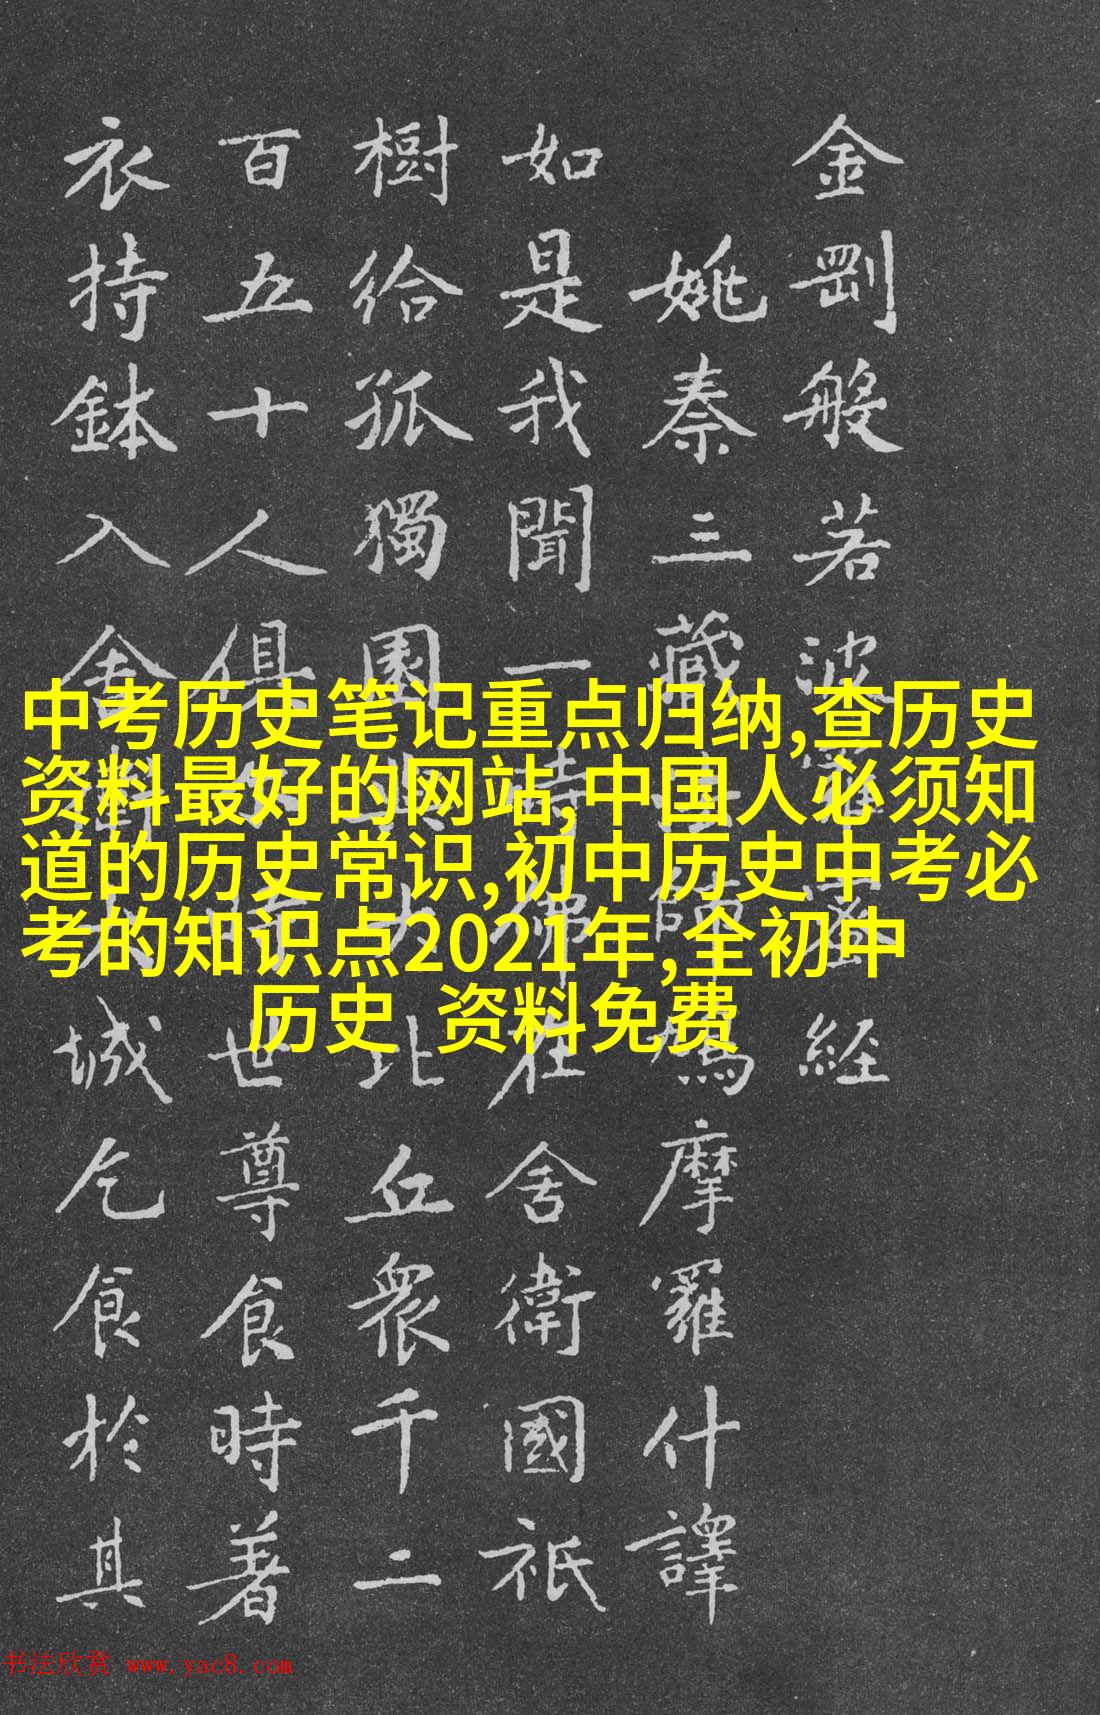 金剛般若波羅蜜經
姚秦三藏法師鳩摩羅什譯
如是我聞一時佛在舍衛國祇
樹給孤獨園與大比丘衆千二
百五十人俱尒時世尊食時著
衣持鉢入舍衛大城乞食於其
中考历史笔记重点归纳,查历史
资料最好的网站,中国人必须知
道的历史常识,初中历史中考必
考的知识点2021年,全初中
历史 资料免费
书法欣赏 www.yac8.com